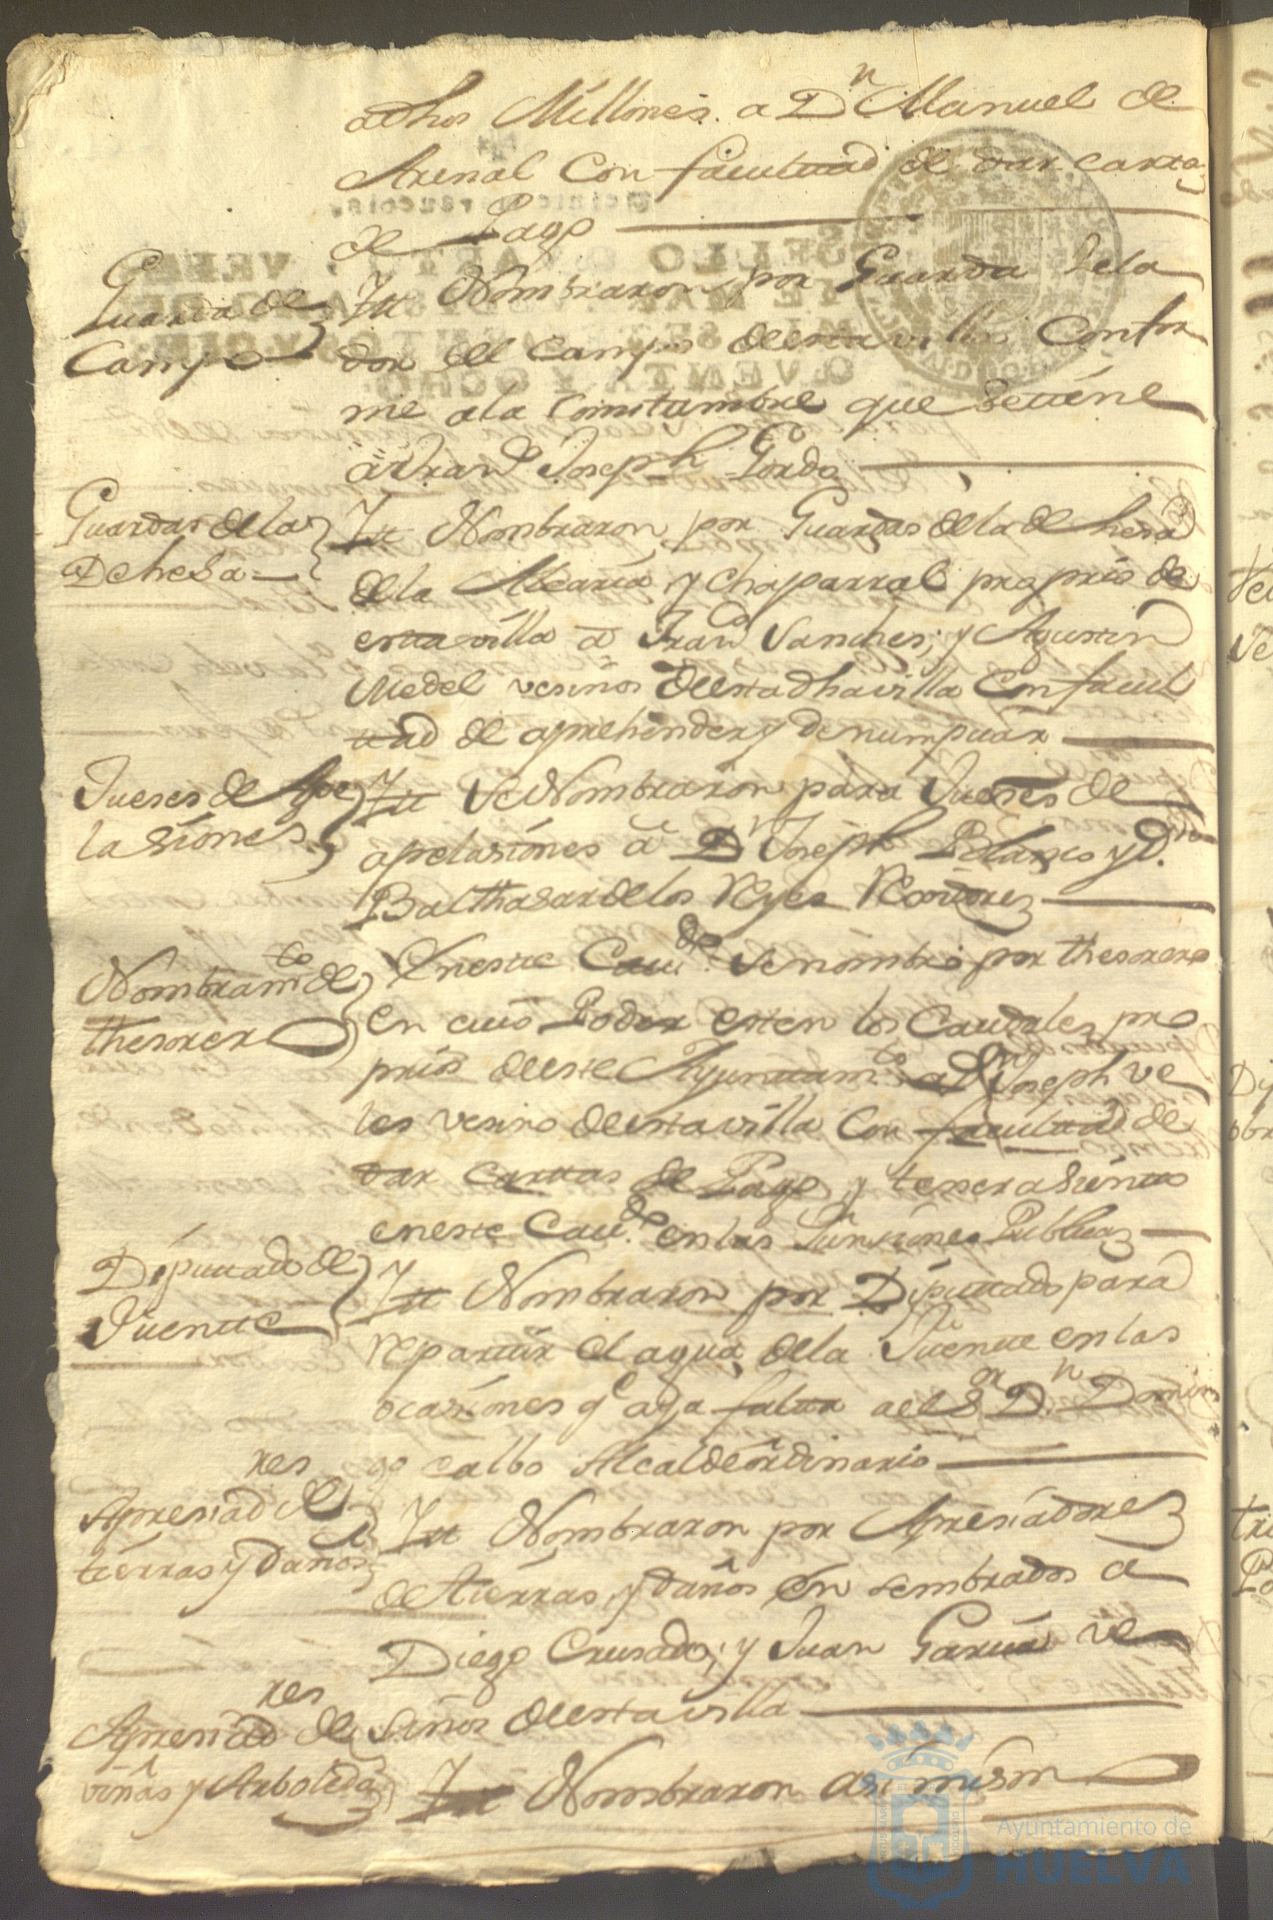 adhos Millones a Dn Manuel de
Arenal Con facultad de dar carta
de Pago
Guarda de
Campo
Itt Nombraron por Guarda Zela
dor del Campo de esta villa Confor
me ala Comstumbre que se tiene
a Franco Joseph Gordo
Guardas de la
Dehesa
Itt Nombraron por Guardas de la dehesa
de la Alcaria y Chaparral proprio de
esta villa a Franco Sanches, y Agustin
Medel vesinos de esta dha villa Con facul
tad de aprehender y denumpciar
Jueses de Ape
lasiones
Itt Se Nombraron para Jueses de
apelasiones a Dn Joseph Polanco y Dn
Balthasar de los Reyes Rexidores
Nombramto de
thesorero
En este Cavdo se nombro por thesorero
en cuio Poder esten los Caudales pro
prios de este Ayuntamto a Dn Joseph Ve
les vesino de esta villa Con facultad de
dar cartas de Pago y tener asiento
en este Cavdo en las funsiones Publicas
Diputtado de
Fuente
Itt Nombraron por Diputtado para
repartir el agua de la Fuente en las
ocasiones qe aya falta a el Sor Dn Domin
go calbo Alcalde ordinario
Apresiadres de
tierras y daños
Itt Nombraron por Apresiadores
de tierras, y daños en sembrados a
Diego Crusado, y Juan Garcia ve
sinos de esta villa
Apresiadres de
viñas y Arboleda
Itt Nombraron asi mismo
Ayuntamiento de
HUELVA